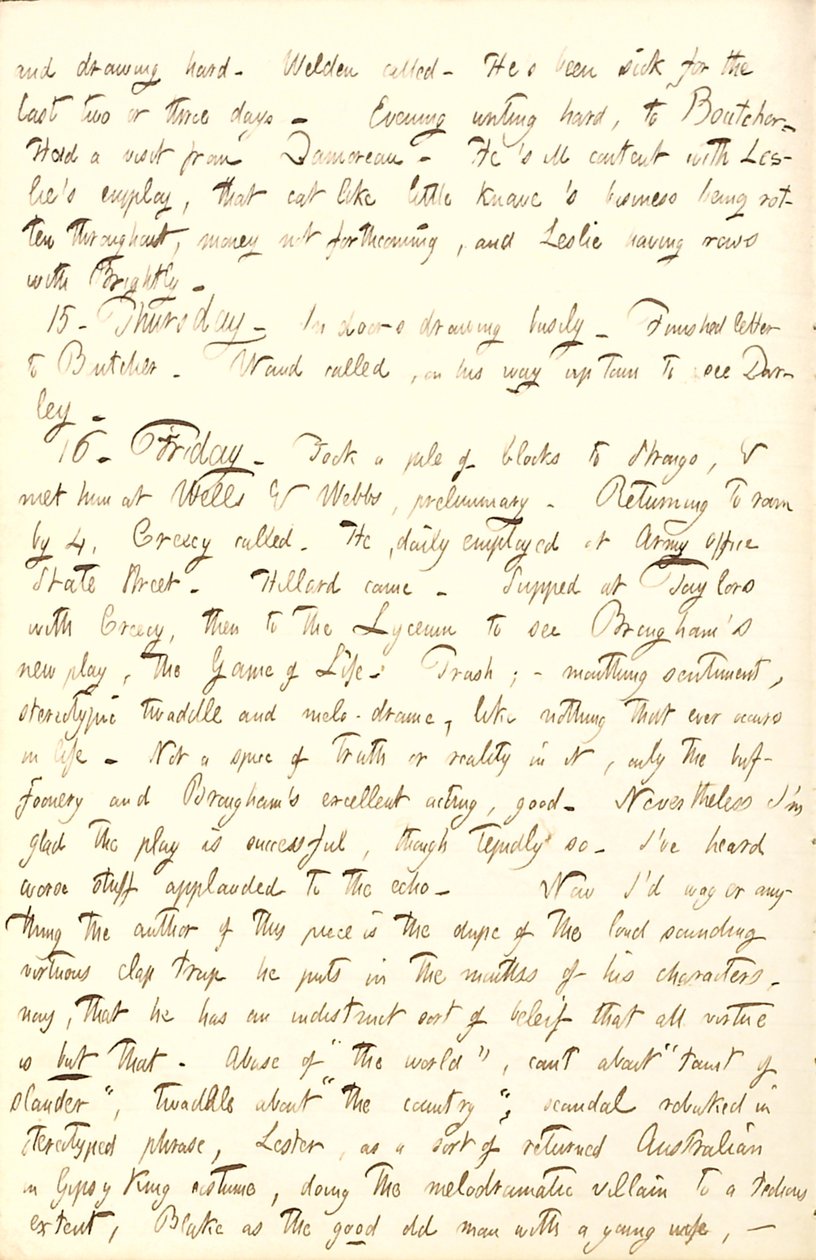 and drawing hard. Welden called. He's been sick for the
last two or three days. Evening writing hard, to Boutcher.
Had a visit from Damoreau. He's ill content with Les-
lie's employ, that cat like little knave's business being rot-
ten throughout, money not forthcoming, and Leslie having rows
with Brightly.
15. Thursday. In doors drawing busily. Finished letter
to Butcher. Waud called, on his way up town to see Dar-
ley.
16. Friday. Took a pile of blocks to Strongs, &
met him at Wells & Webbs, preliminary. Returning to room
by 4, Crecy called. He daily employed at Army office
State Street. Hillard came. Supped at Taylors
with Crecy, then to the Lyceum to see Brougham's
new play, the Game of Life. Trash; - mouthing sentiment,
stereotypic twaddle and melo-drame, like nothing that ever occurs
in life. Not a spice of truth or reality in it, only the buf-
foonery and Brougham's excellent acting, good. Nevertheless I'm
glad the play is successful, though tepidly so. I've heard
worse stuff applauded to the echo. Now I'd wager any-
thing the author of this piece is the dupe of the loud sounding
virtuous clap trap he puts in the mouths of his characters,
nay, that he has an indistinct sort of beleif that all virtue
is but that. Abuse of "the world", cant about "taint of
slander", twaddle about "the country", scandal rebuked in
stereotyped phrase, Lester, as a sort of returned Australian
in Gipsy King costume, doing the melodramatic villain to a tedious
extent, Blake as the good old man with a young wife, —